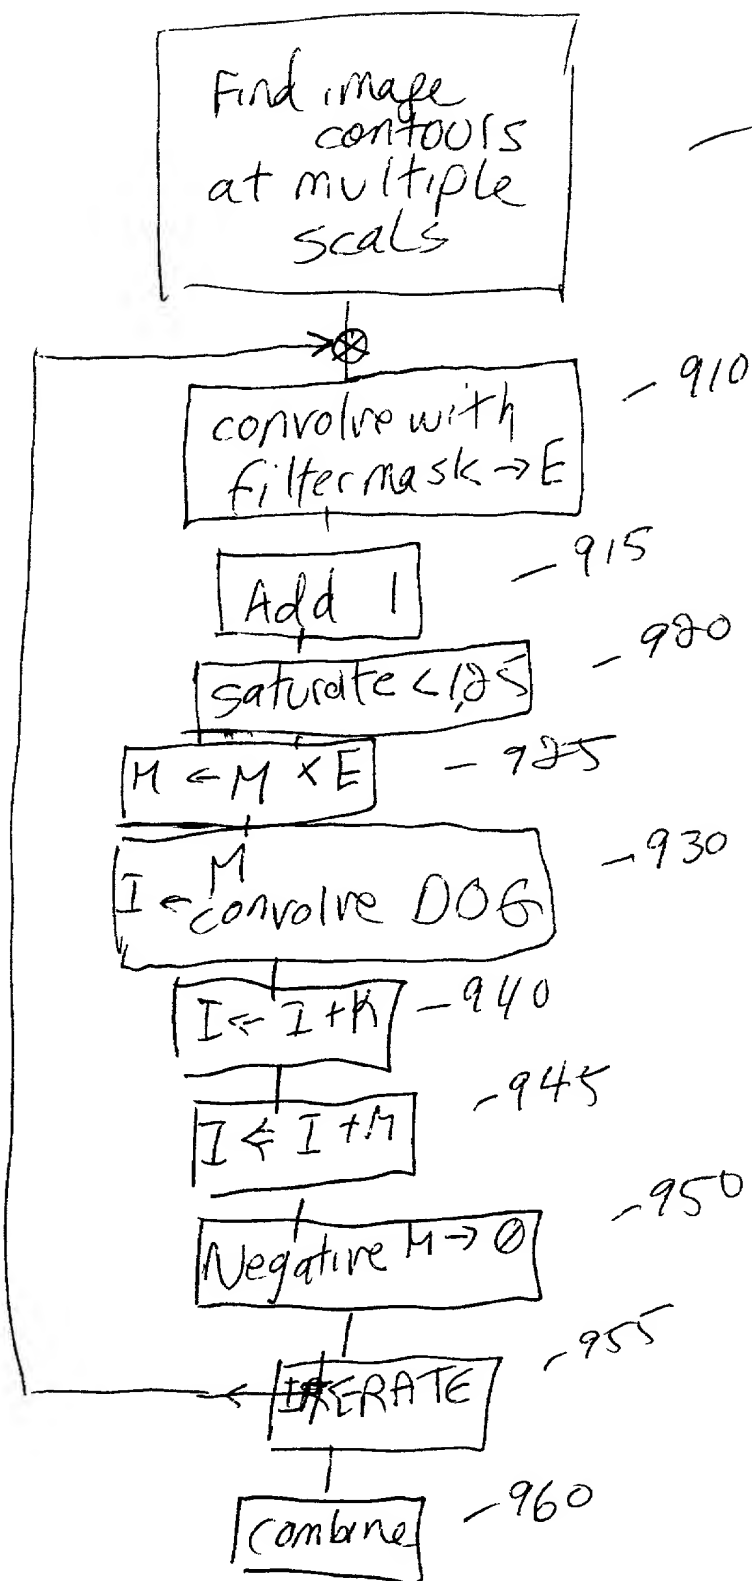 Find image
contours
at multiple
scals
convolve with
filter mask → E
- 910
Add 1
- 915
saturate < 1,25
- 920
M ← M × E
- 925
I ← M
convolve DOG
- 930
I ← I + K
- 940
I ← I + M
- 945
Negative M → Ø
- 950
ITERATE
- 955
Combine
- 960